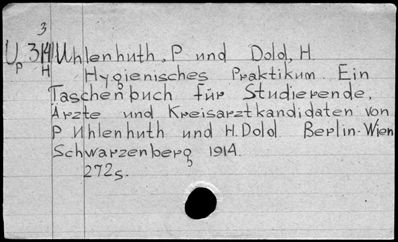 3
U 314 Uhlenhuth, P und Dold, H.
P H Hygienisches Praktikum. Ein
Taschenbuch für Studierende,
Ärzte und Kreisarztkandidaten von
P Uhlenhuth und H. Dold Berlin-Wien
Schwarzenberg 1914.
272s.